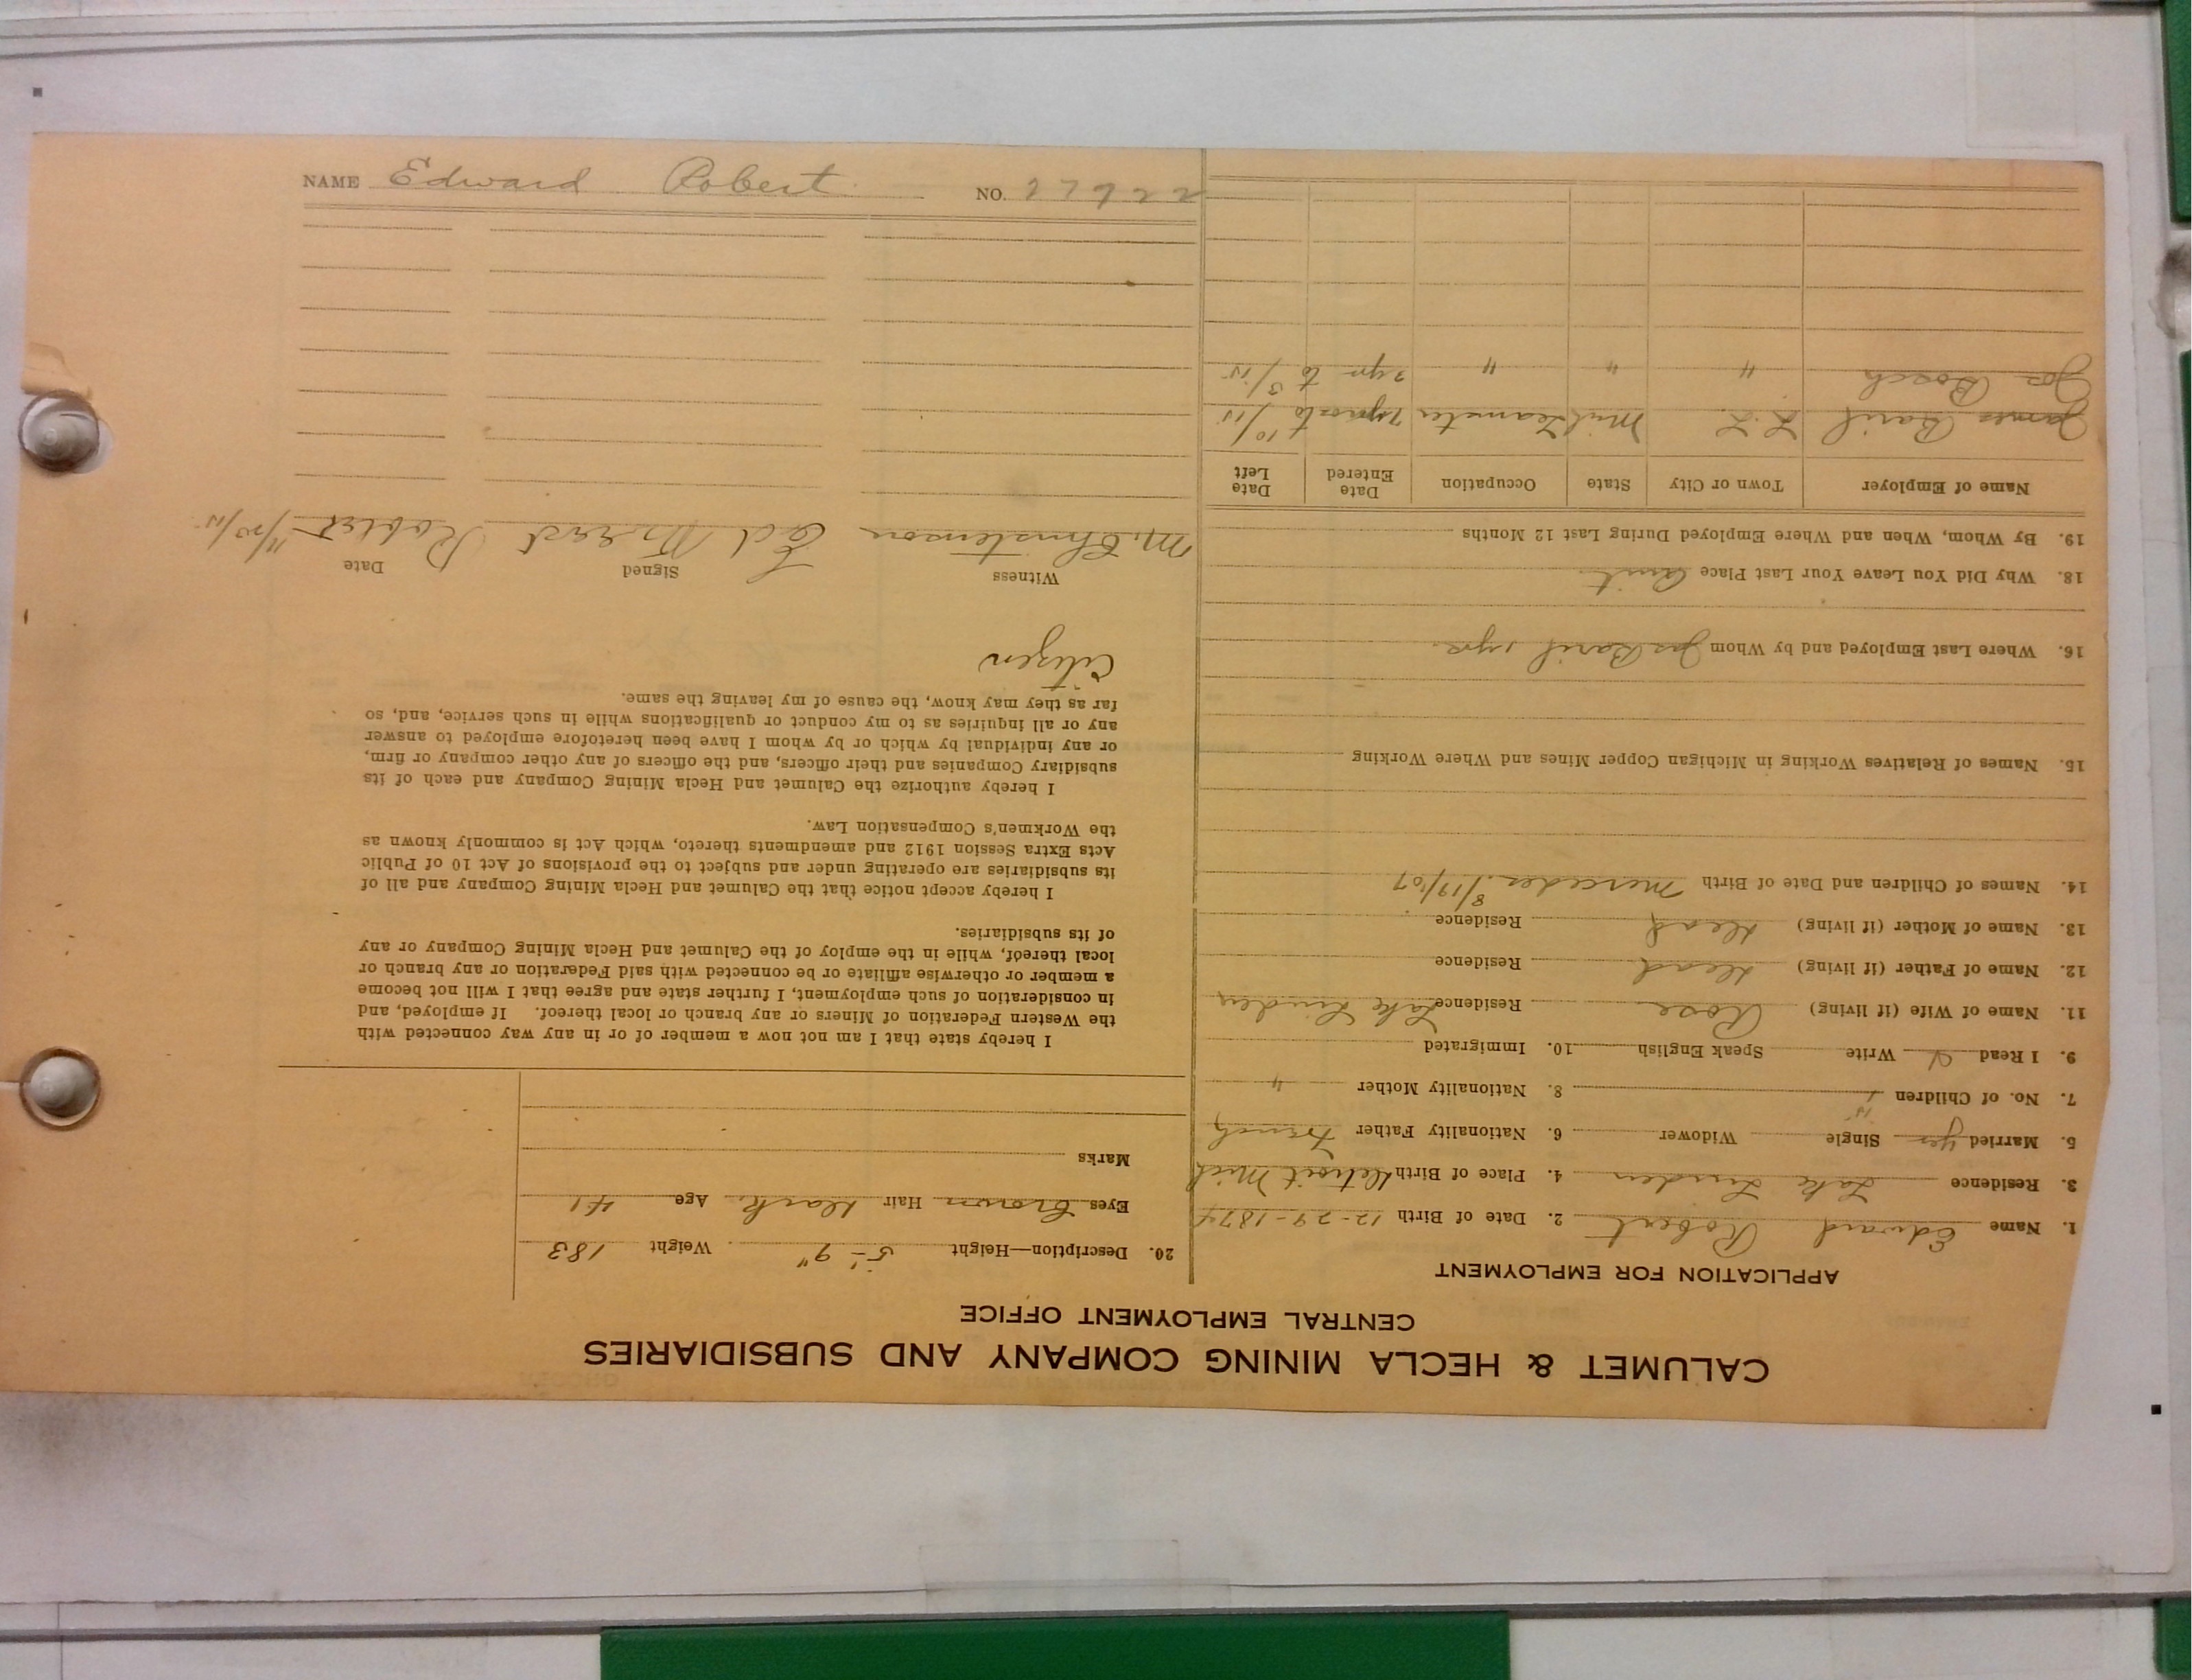 CALUMET & HECLA MINING COMPANY AND SUBSIDIARIES
CENTRAL EMPLOYMENT OFFICE
APPLICATION FOR EMPLOYMENT
1. Name Edward Robert 2. Date of Birth 12-29-1874
3. Residence Lake Linden 4. Place of Birth Detroit Mich
5. Married yes Single Widower 6. Nationality Father French
7. No. of Children 1 8. Nationality Mother "
9. I Read Write Speak English 10. Immigrated
11. Name of Wife (if living) Rose Residence Lake Linden
12. Name of Father (if living) dead Residence
13. Name of Mother (if living) dead Residence
14. Names of Children and Date of Birth Mercedes 8/19/07
15. Names of Relatives Working in Michigan Copper Mines and Where Working
16. Where Last Employed and by Whom Jas Baril
18. Why Did You Leave Your Last Place Quit
19. By Whom, When and Where Employed During Last 12 Months
Name of Employer Town or City State Occupation Date Entered Date Left
James Baril L.L. Mich Teamster 10/15
Jos Bosch " " " 2 yrs to 3/15
20. Description—Height 5'-9" Weight 183
Eyes brown Hair dark Age 41
Marks
I hereby state that I am not now a member of or in any way connected with
the Western Federation of Miners or any branch or local thereof. If employed, and
in consideration of such employment, I further state and agree that I will not become
a member or otherwise affiliate or be connected with said Federation or any branch or
local thereof, while in the employ of the Calumet and Hecla Mining Company or any
of its subsidiaries.
I hereby accept notice that the Calumet and Hecla Mining Company and all of
its subsidiaries are operating under and subject to the provisions of Act 10 of Public
Acts Extra Session 1912 and amendments thereto, which Act is commonly known as
the Workmen's Compensation Law.
I hereby authorize the Calumet and Hecla Mining Company and each of its
subsidiary Companies and their officers, and the officers of any other company or firm,
or any individual by which or by whom I have been heretofore employed to answer
any or all inquiries as to my conduct or qualifications while in such service, and, so
far as they may know, the cause of my leaving the same.
Citizen
Witness Signed Date
M. Christenson Ed Robert 11/20/15
NAME Edward Robert NO. 27922